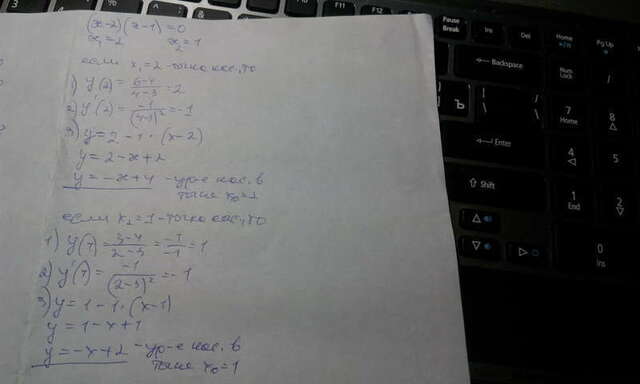 (x-2)(x-1)=0
x₁=2 x₂=1
если x₁=2 - точка кас, то
1) y(2) = (6-4)/(4-3) = 2
2) y'(2) = -1/(4-3)² = -1
3) y = 2 - 1 · (x-2)
y = 2 - x + 2
y = -x+4 - ур-е кас. в
точке x₀=2
если x₂=1 - точка кас, то
1) y(1) = (3-4)/(2-3) = -1/-1 = 1
2) y'(1) = -1/(2-3)² = -1
3) y = 1 - 1 · (x-1)
y = 1 - x + 1
y = -x+2 - ур-е кас. в
точке x₀=1
F11
F12
Pause
Break
Ins
Del
Home
PgUp
Backspace
Num
Lock
/
7
Home
8
Ъ
\
Enter
4
5
Shift
1
End
2
0
Ins